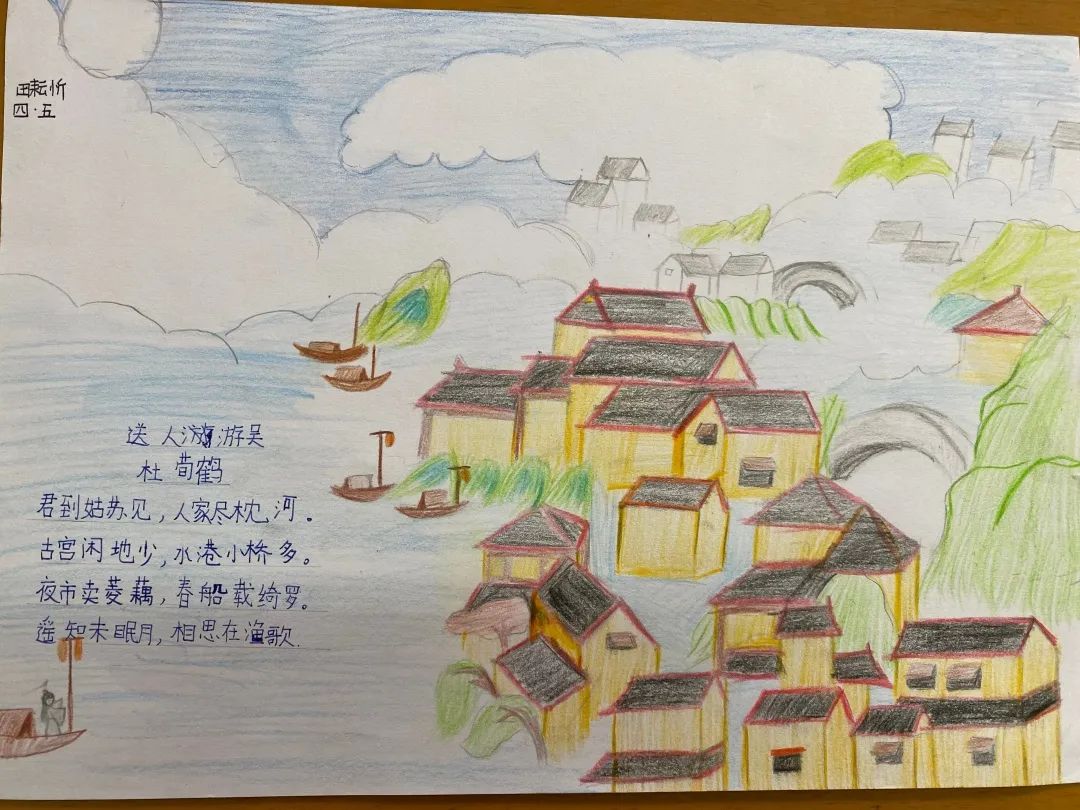 田耘忻
四·五
送人游游吴
杜荀鹤
君到姑苏见，人家尽枕河。
古宫闲地少，水港小桥多。
夜市卖菱藕，春船载绮罗。
遥知未眠月，相思在渔歌.